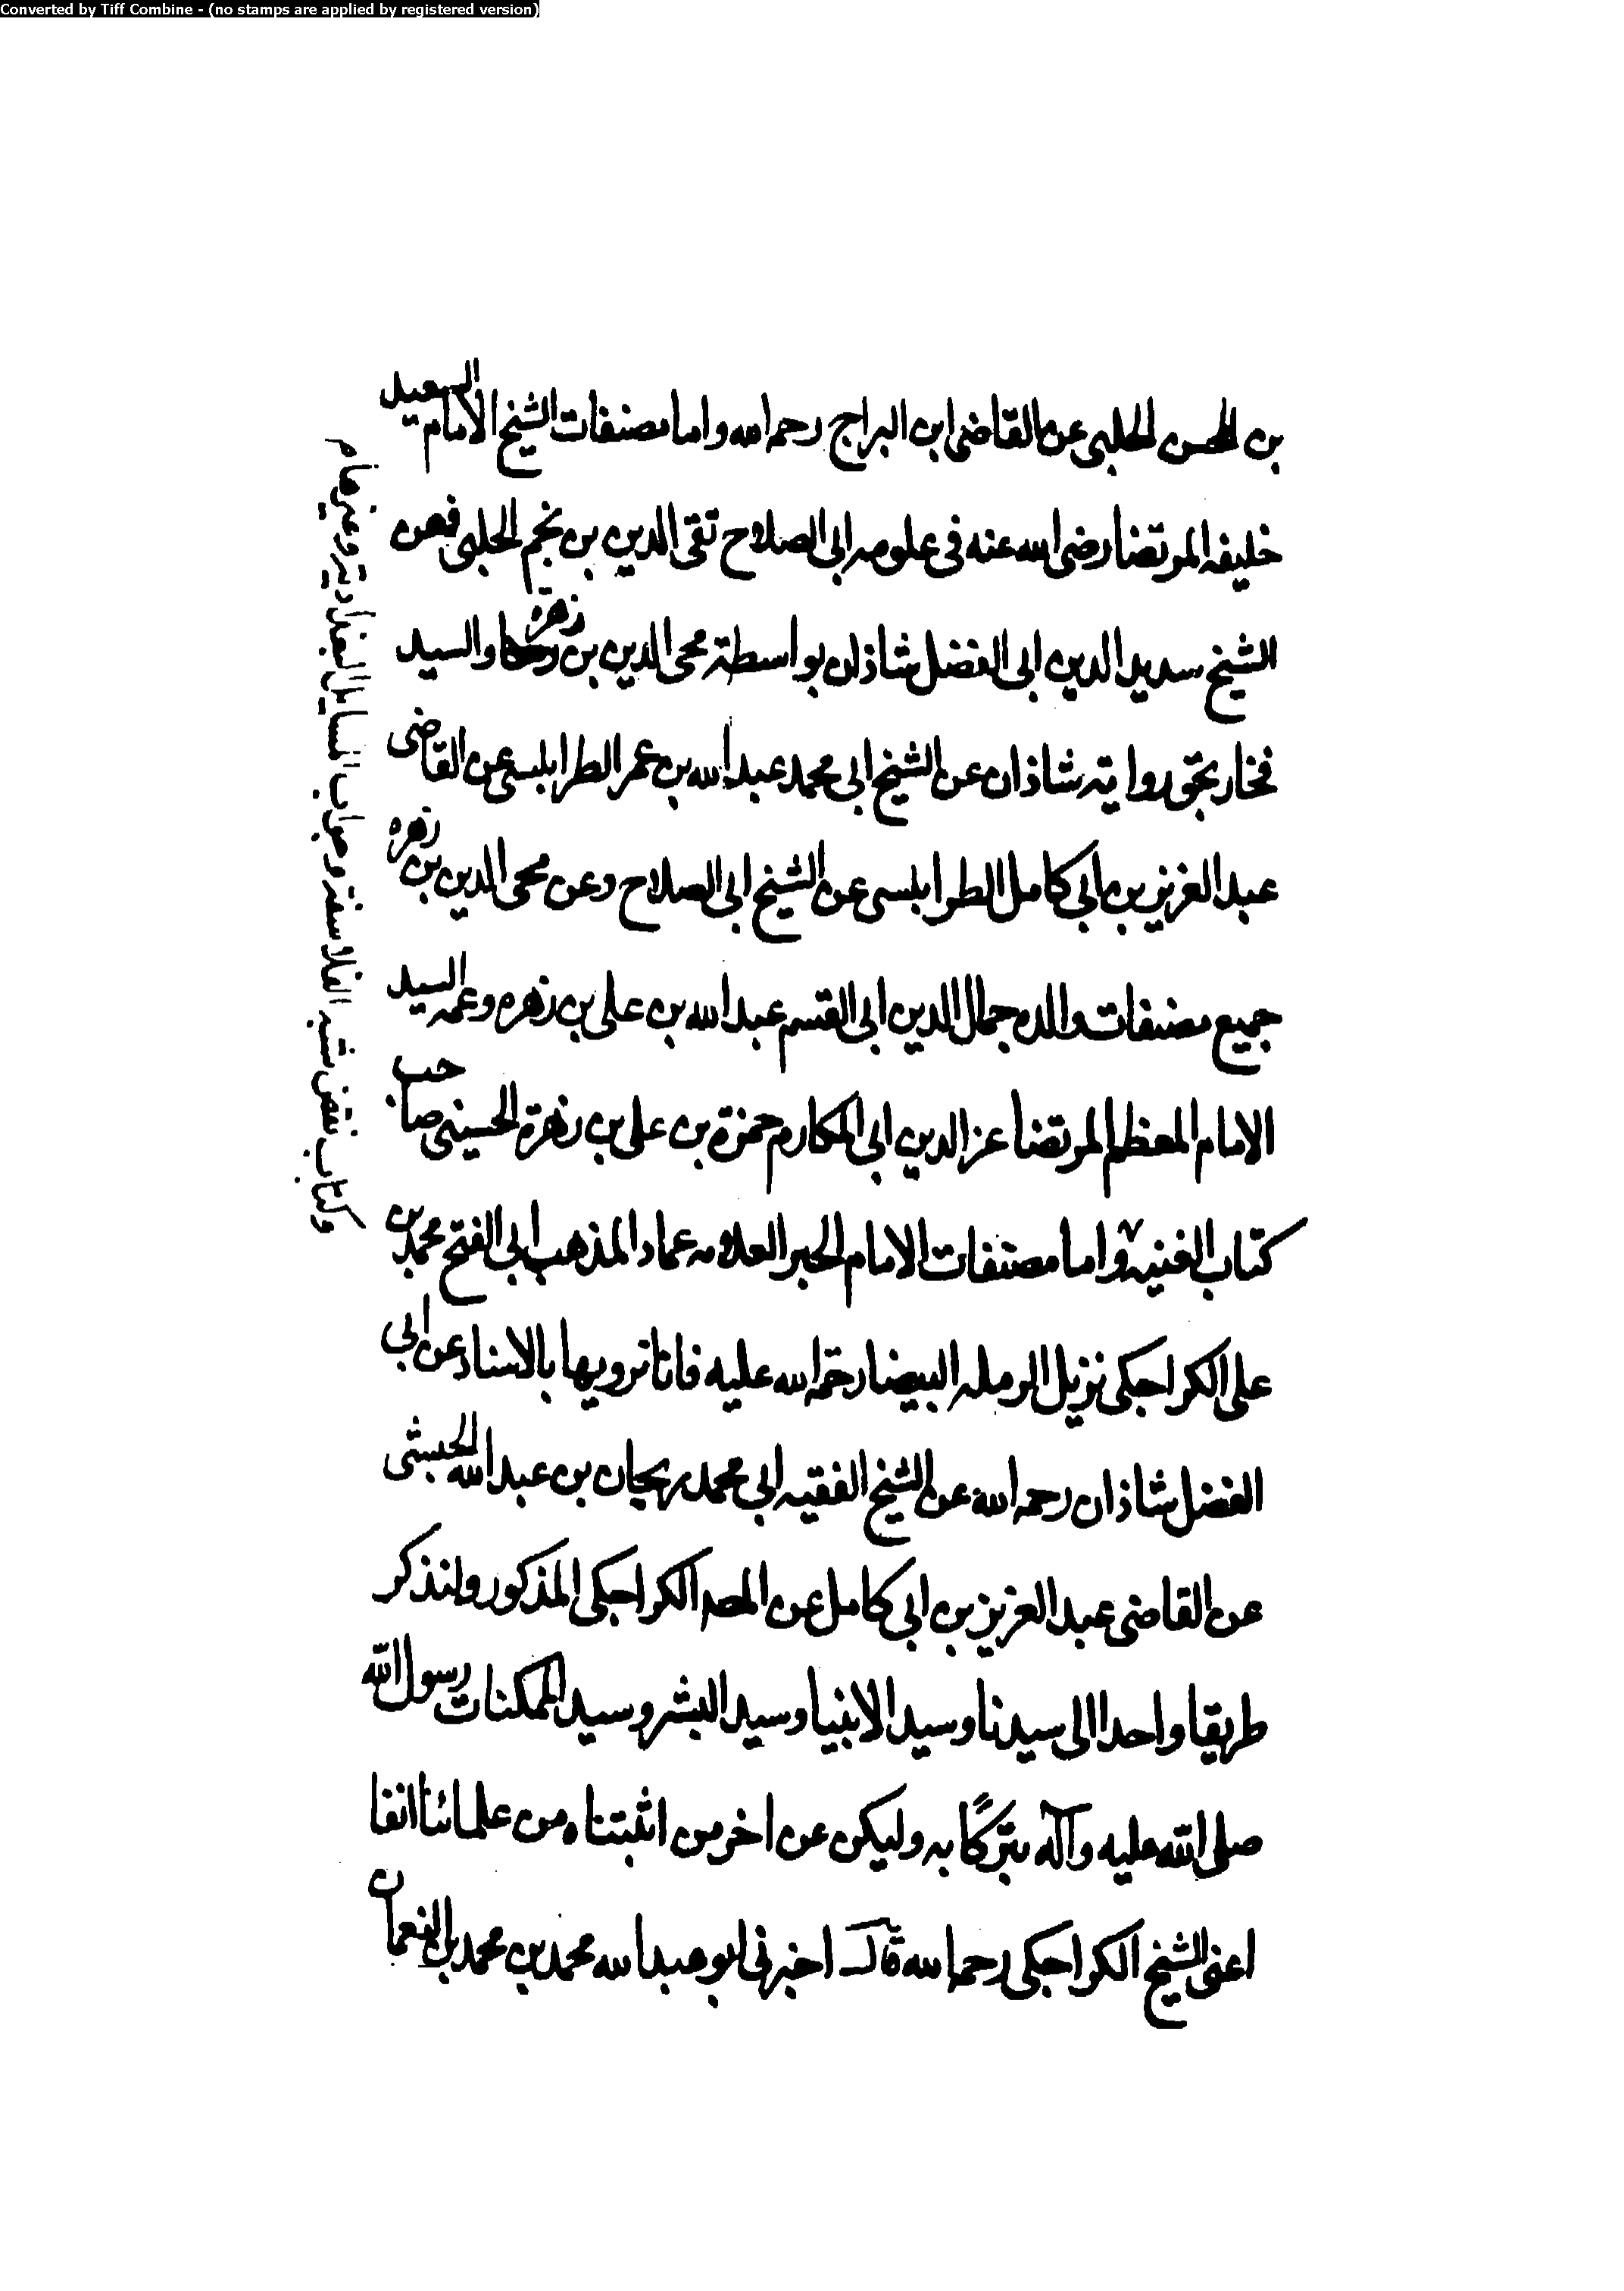 Converted by Tiff Combine - (no stamps are applied by registered version)
بن المحسن الحلبي عن القاضى ابن البراج رحمه الله واما مصنفات الشيخ الامام السعيد
خليفه المرتضا رضى الله عنه فى علومه ابى الصلاح تقى الدين بن نجم الحلبى فعن
الشيخ سديد الدين ابى الفضل شاذان بواسطة محى الدين بن زهرة والسيد
فخار بحق روايته شاذان عن الشيخ ابى محمد عبد الله بن عمر الطرابلسى عن القاضى
عبد العزيز بن ابي كامل الطرابلسى عن الشيخ ابى الصلاح وعن محى الدين بن زهره
جميع مصنفات والده جمال الدين ابى القسم عبد الله بن على بن زهره وعمه السيد
الامام المعظم المرتضا عز الدين ابى المكارم حمزة بن على بن زهرة الحسينى صاحب
كتاب الغنيه واما مصنفات الامام الحبر العلامه عماد المذهب ابى الفتح محمد بن
على الكراجكى نزيل الرمله البيضا رحمة الله عليه فانا نرويها بالاسناد عن ابي
الفضل شاذان رحمه الله عن الشيخ الفقيه ابي محمد ريحان بن عبد الله الحبشى
عن القاضى عبد العزيز بن ابي كامل عن الكراجكى المذكور ولنذكر
طريقا واحدا الى سيدنا وسيد الانبيا وسيد البشر وسيد الممكنات رسول الله
صلى الله عليه وآله تبركًا به وليكن عن اخر من اثبتناه من علمائنا انفا
اعنى الشيخ الكراجكى رحمه الله قال اخبرنى ابو عبد الله محمد بن محمد بن النعمان
وكتاب نقض شبه الفلاسفه وجواب المسايل البغداديّه وغيرهام